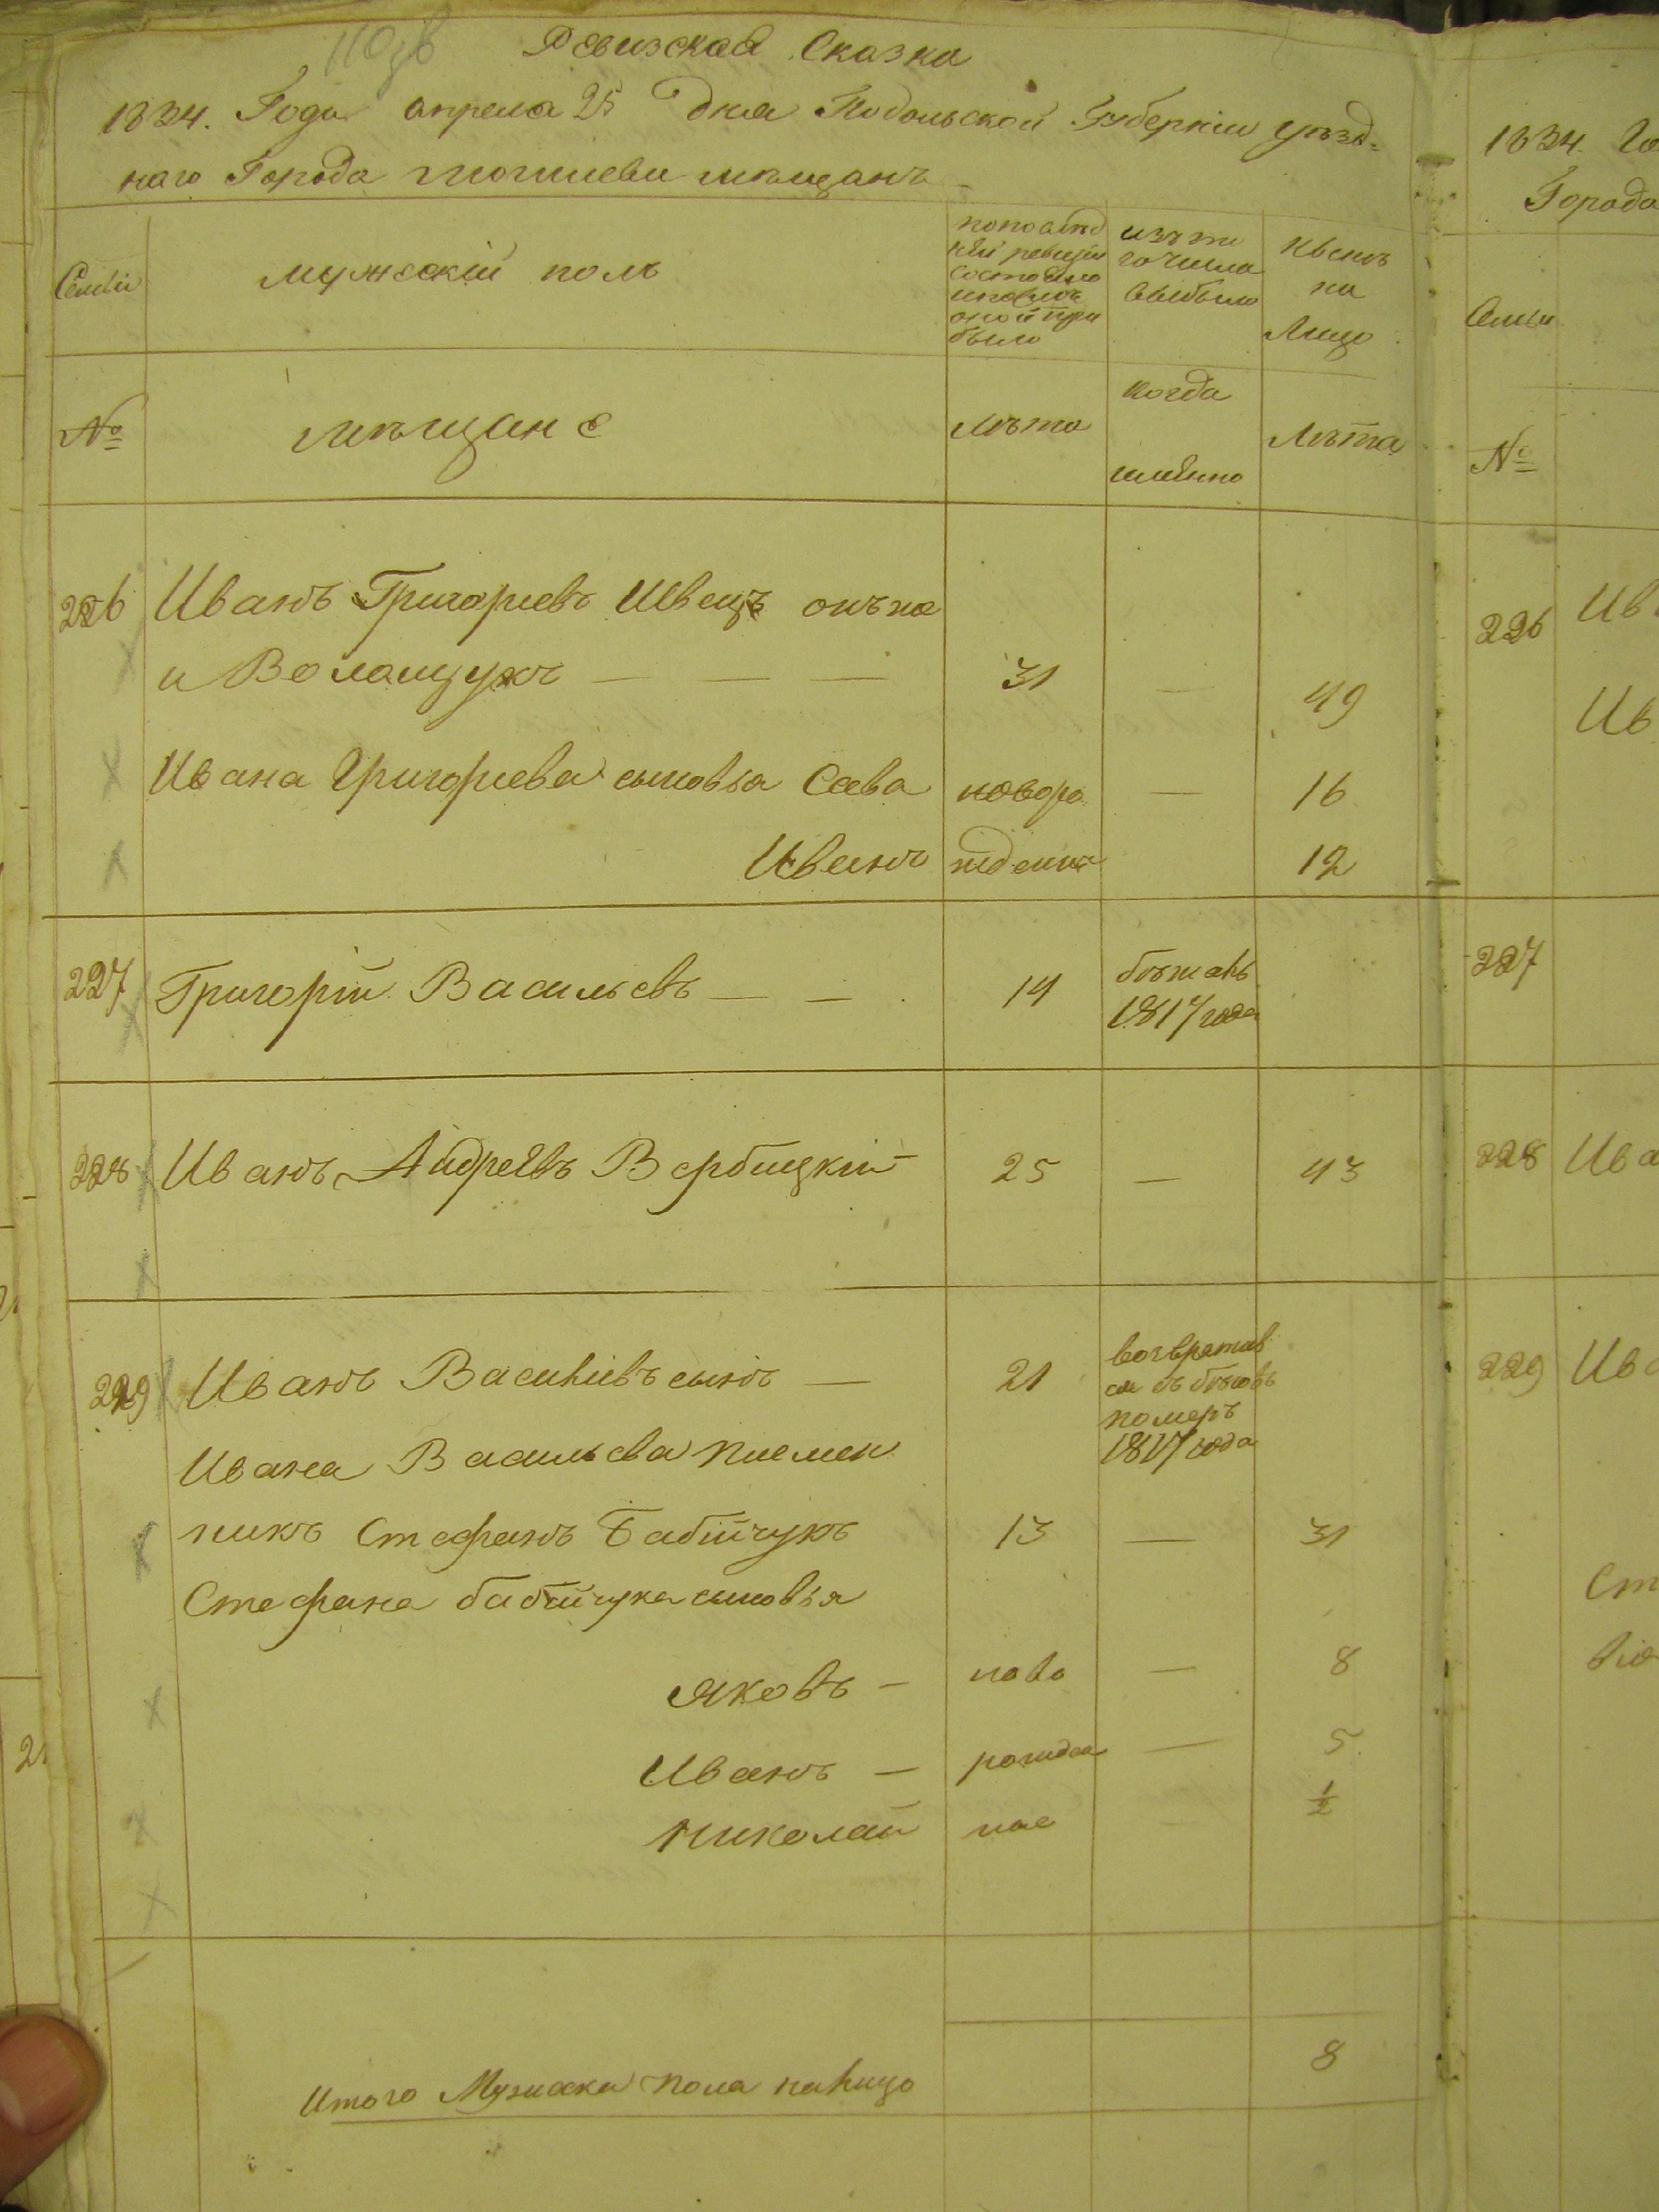 Ревизская Сказка
1834. Года апреля 25 дня Подольской Губернiи уезд=
наго Города Могилева мѣщанъ
Семьи
мужескiй полъ
по послѣд
ней ревизiи
состояло
и послѣ
оной при
было
изъ то
го числа
выбыло
Нынѣ
на
Лицо
№
мѣщане
лѣта
когда
имѣнно
Лѣта
226 Иванъ Григорiевъ Швецъ онъ же
и Волощукъ — — — 31 — 49
Ивана Григорiева сыновья Сава новоро — 16
Иванъ жденные 12
227 Григорiй Васильевъ — — 14 бѣжалъ
1817 года
228 Иванъ Андреевъ Вербицкiй 25 — 43
229 Иванъ Василiевъ сынъ — 21 возвратив
ся съ бѣговъ
померъ
1817 года
Ивана Васильева племен
никъ Стефанъ Бабiйчукъ 13 — 31
Стефана бабiйчука сыновья
Яковъ — ново — 8
Иванъ — рожден — 5
Николай ные — ½
Итого Мужеска пола налицо 8
1834. Го
Города
Семьи
№
226 Ив
Ив
227
228 Ива
229 Ива
Ст